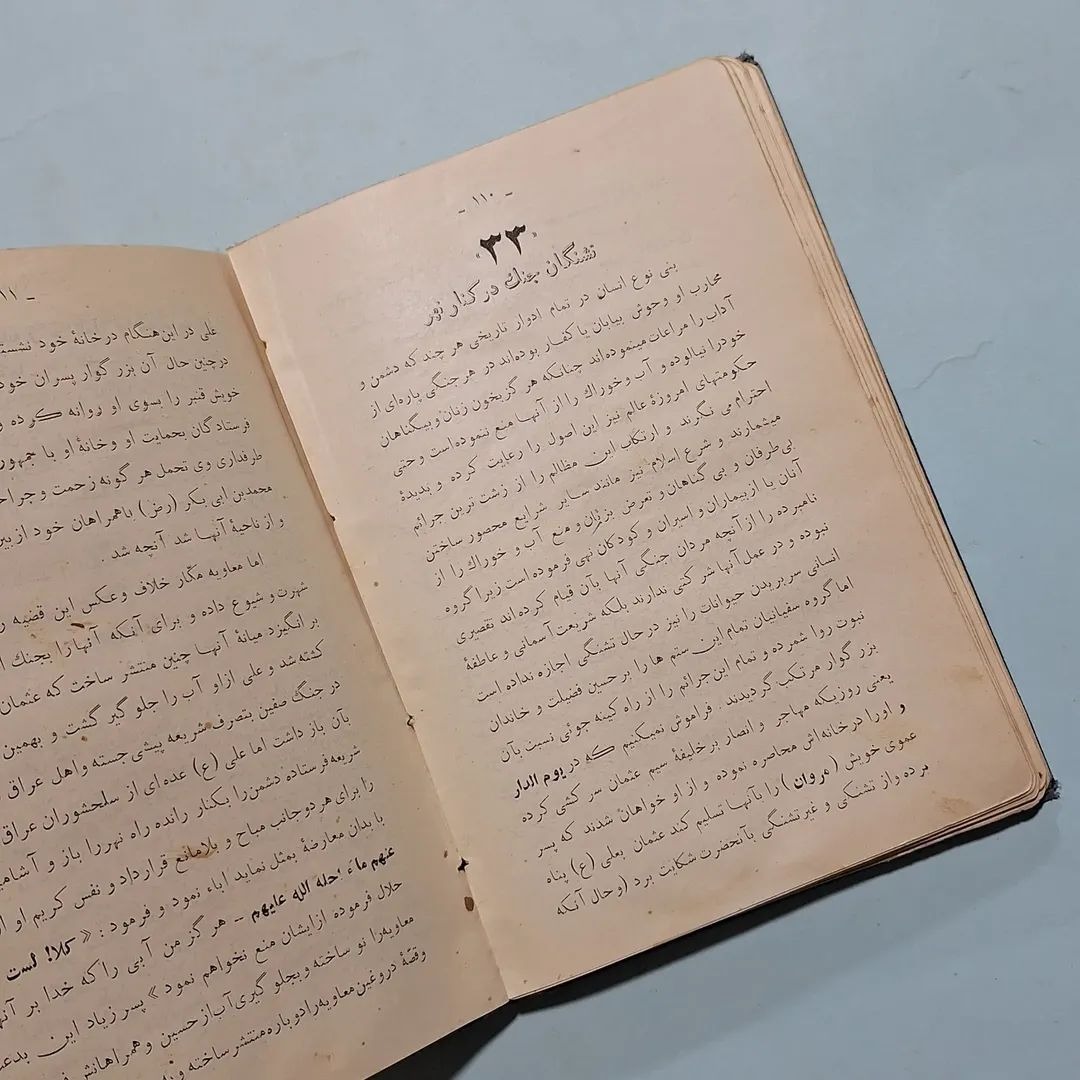 - ۱۱۰ -
«۳۳»
تشنگان جنك در کنار نهر
بنی نوع انسان در تمام ادوار تاریخی هر چند که دشمن و
محارب او وحوش بیابان یا کفار بوده‌اند در هر جنگی پاره‌ای از
آداب را مراعات مینموده‌اند چنانکه هر گز بخون زنان و بیگناهان
خود را نیالوده و آب و خوراك را از آنها منع ننموده است و حتی
حکومتهای امروزهٔ عالم نیز این اصول را رعایت کرده و بدیدهٔ
احترام می نگرند و ارتکاب این مظالم را از زشت ترین جرائم
میشمارند و شرع اسلام نیز مانند سایر شرایع محصور ساختن
بی‌طرفان و بی گناهان و تعرض بزنان و منع آب و خوراك را از
آنان یا از بیماران و اسیران و کودکان نهی فرموده است زیرا گروه
نامبرده را از آنچه مردان جنگی آنها بآن قیام کرده‌اند تقصیری
نبوده و در عمل آنها شر کتی ندارند بلکه شریعت آسمانی و عاطفهٔ
انسانی سر بریدن حیوانات را نیز در حال تشنگی اجازه نداده است
اما گروه سفیانیان تمام این ستم ها را بر حسین فضیلت و خاندان
نبوت روا شمرده و تمام این جرائم را از راه کینه جوئی نسبت بآن
بزر گوار مرتکب گردیدند . فراموش نمیکنیم که در یوم الدار
یعنی روزیکه مهاجر و انصار بر خلیفهٔ سیم عثمان سر کشی کرده
و او را در خانه‌اش محاصره نموده و از او خواهان شدند که پسر
عموی خویش (مروان) را بآنها تسلیم کند عثمان بعلی (ع) پناه
برده و از تشنگی و غیر تشنگی بآنحضرت شکایت برد (و حال آنکه
علی در این هنگام در خانهٔ خود نشسته
در چنین حال آن بزر گوار پسران خود
خویش قنبر را بسوی او روانه کرده و
فرستاد گان بحمایت او و خانهٔ او با جمهور
طرفداری وی تحمل هر گونه زحمت و جراح
محمد بن ابی بکر (رض) باهمراهان خود از بین
و از ناحیهٔ آنها شد آنچه شد .
اما معاویه مکّار خلاف و عکس این قضیه ر
شهرت و شیوع داده و برای آنکه آنها را بجنك
بر انگیزد میانهٔ آنها چنین منتشر ساخت که عثمان
کشته شد و علی از او آب را جلو گیر گشت و بهمین
در جنگ صفین بتصرف شریعه پیشی جسته و اهل عراق
بآن باز داشت اما علی (ع) عده ای از سلحشوران عراق
شریعه فرستاده دشمن را بکنار رانده راه نهر را باز و آشامید
را برای هر دو جانب مباح و بلامانع قرارداد و نفس کریم او از
با بدان معارضهٔ بمثل نماید اباء نمود و فرمود : « کلا! لست
عنهم ماء احله الله علیهم – هر گز من آبی را که خدا بر آنها
حلال فرموده از ایشان منع نخواهم نمود » پسر زیاد این بدعت
معاویه را نو ساخته و بجلو گیری آب از حسین و همراهانش
وقصّهٔ دروغین معاویه را دوباره منتشر ساخته و